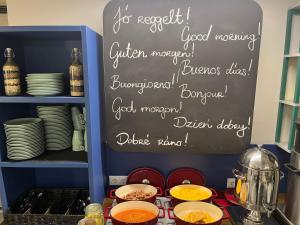 Jó reggelt!
Good morning!
Guten morgen!
Buenos días!
Buongiorno!
Bonjour!
God morgon!
Dzień dobry!
Dobré ráno!